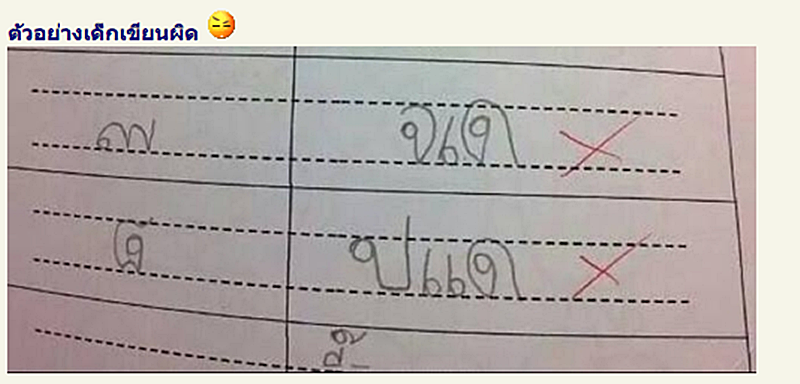 ตัวอย่างเด็กเขียนผิด
๗ จเด
๘ ปแด